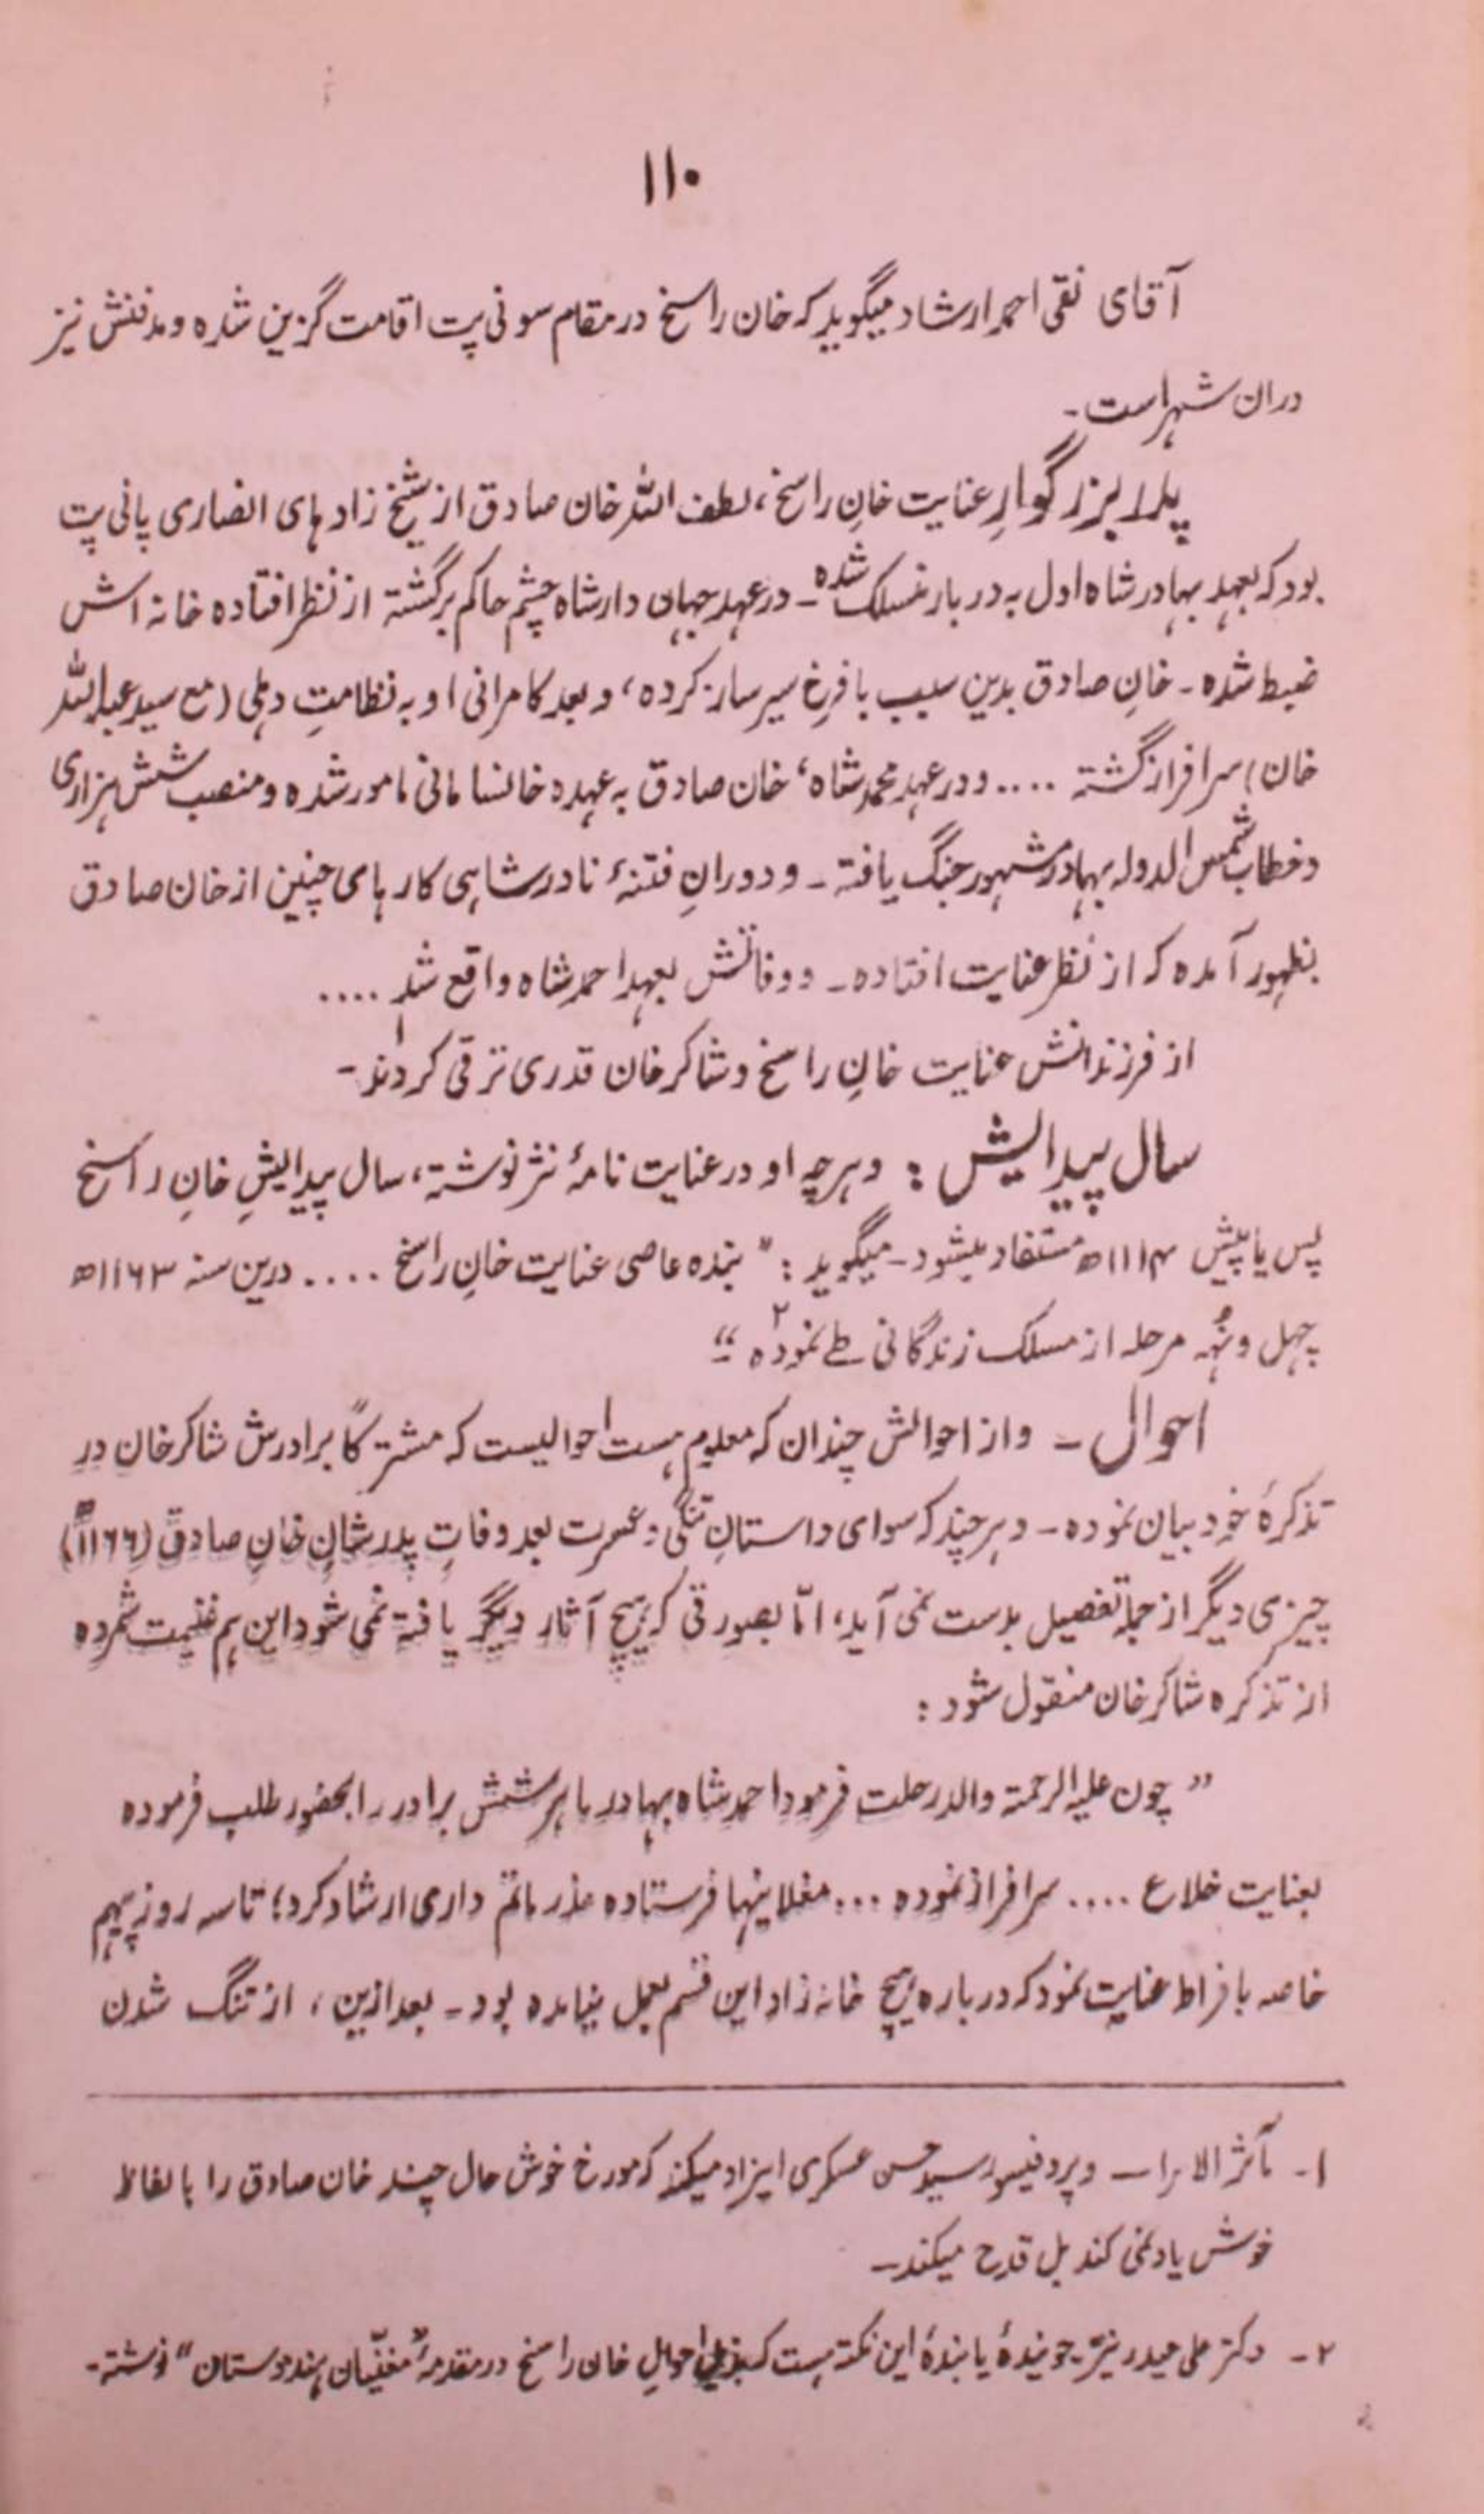 ۱۱۰
آقای نقی احمد ارشاد میگوید که خان راسخ در مقام سونی پت اقامت گزین شده و مدفنش نیز
دران شهر است۔
پدر بزرگوارِ عنایت خانِ راسخ، لطف اللہ خان صادق از شیخ زاد ہای انصاری پانی پت
بود که بعہد بہادر شاہ اول بہ دربار منسلک شدہ۔ در عہد جہاں دار شاہ چشم حاکم برگشتہ از نظر افتادہ خانہ اش
ضبط شدہ۔ خانِ صادق بدین سبب با فرخ سیر ساز کردہ، و بعد کامرانی او بہ نظامتِ دہلی (مع سید عبداللہ
خان) سرافراز گشتہ .... و در عہد محمد شاہ، خان صادق بہ عہدہ خانسامانی مامور شدہ و منصب شش ہزاری
و خطاب شمس الدولہ بہادر مشہور جنگ یافتہ۔ و دورانِ فتنۂ نادر شاہی کار ہای چنین از خان صادق
بظہور آمدہ کہ از نظر عنایت افتادہ۔ و وفاتش بعہد احمد شاہ واقع شد ....
از فرزندانش عنایت خانِ راسخ و شاکر خان قدری ترقی کردند۱۔
سال پیدایش : و ہرچہ او در عنایت نامۂ نثر نوشتہ، سال پیدایشِ خانِ راسخ
پس یا پیش ۱۱۱۴ھ مستفاد میشود۔ میگوید : "بندہ عاصی عنایت خانِ راسخ .... درین سنہ ۱۱۶۳ھ
چہل و نُہہ مرحلہ از مسلک زندگانی طے نمودہ۲"۔
احوال ۔ و از احوالش چندان کہ معلوم ہست احوالیست کہ مشترکاً برادرش شاکر خان در
تذکرۂ خود بیان نمودہ۔ و ہر چند کہ سوای داستانِ تنگی و عسرت بعد وفاتِ پدر شان خانِ صادق (۱۱۶۶ھ)
چیزی دیگر از جملہ تفصیل بدست نمی آید، امّا بصورتی کہ ہیچ آثار دیگر یافتہ نمی شود این ہم غنیمت شمردہ
از تذکرہ شاکر خان منقول شود :
"چون علیہ الرحمتہ والد رحلت فرمود احمد شاہ بہادر ما ہر شش برادر را بحضور طلب فرمودہ
بعنایت خلاع .... سرافراز نمودہ ... فرستادہ عذر ماتم داری ارشاد کرد؛ تا سہ روز پیہم
خاصہ با فراط عنایت نمود کہ در بارہ ہیچ خانہ زاد این قسم بعمل نیامدہ بود۔ بعد ازین، از تنگ شدن
۱۔ مآثر الامرا — و پروفیسور سید حسن عسکری ایزاد میکند کہ مورخ خوش حال چند خان صادق را با لفاظ
خوش یاد نمی کند بل قدح میکند۔
۲۔ دکتر علی حیدر نیّر جویندۂ یابندۂ این نکتہ ہست کہ احوالِ خان راسخ در مقدمۂ "مغنیّان ہندوستان" نوشتہ۔